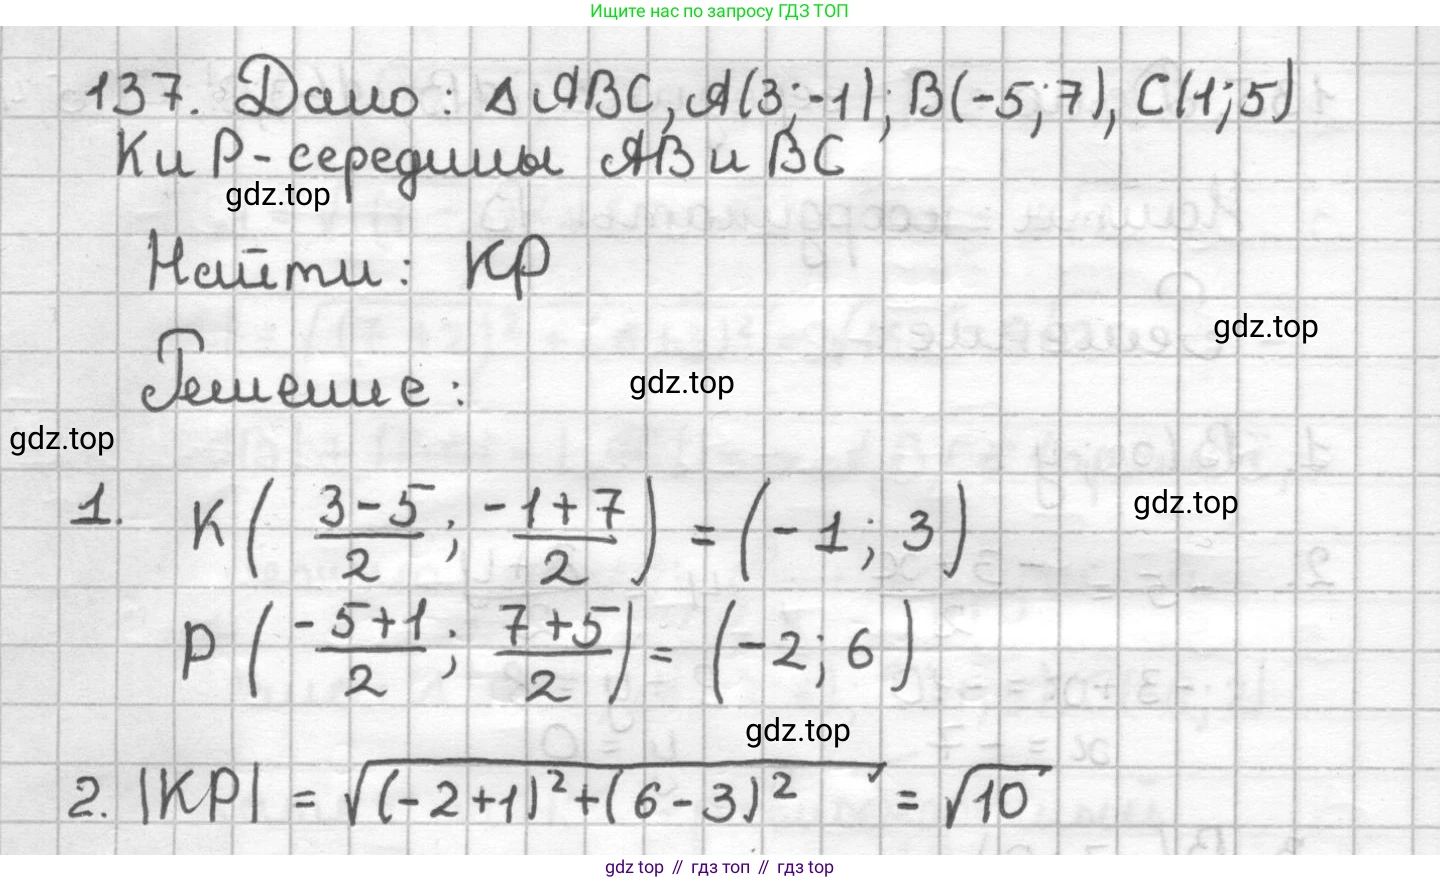 Ищите нас по запросу ГДЗ ТОП
137. Дано: Δ ABC, A(3;-1); B(-5;7), C(1;5)
K и P - середины AB и BC
gdz.top
Найти: KP
gdz.top
Решение:
gdz.top
gdz.top
1. K ( (3-5)/2 ; (-1+7)/2 ) = (-1; 3)
gdz.top
P ( (-5+1)/2 ; (7+5)/2 ) = (-2; 6)
gdz.top
2. |KP| = √((-2+1)²+(6-3)²) = √10
gdz top // гдз топ // гдз top